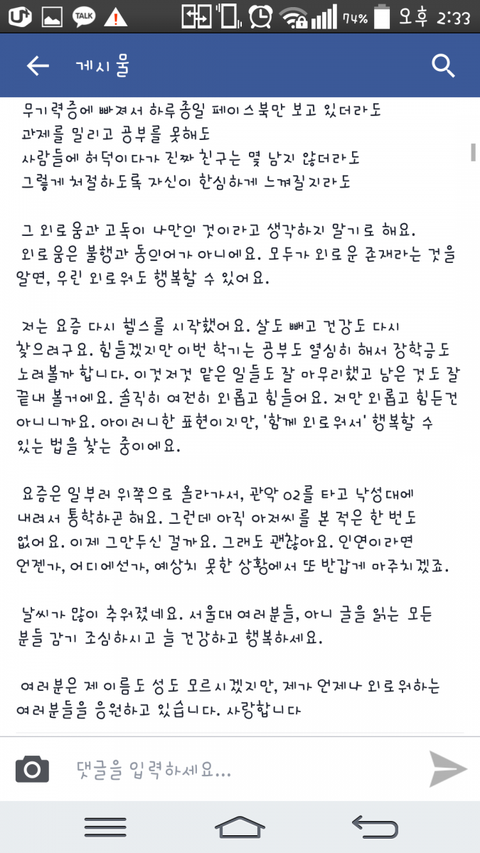 TALK 74% 오후 2:33
게시물
무기력증에 빠져서 하루종일 페이스북만 보고 있더라도
과제를 밀리고 공부를 못해도
사람들에 허덕이다가 진짜 친구는 몇 남지 않더라도
그렇게 처절하도록 자신이 한심하게 느껴질지라도
그 외로움과 고독이 나만의 것이라고 생각하지 말기로 해요.
외로움은 불행과 동의어가 아니에요. 모두가 외로운 존재라는 것을
알면, 우린 외로워도 행복할 수 있어요.
저는 요즘 다시 헬스를 시작했어요. 살도 빼고 건강도 다시
찾으려구요. 힘들겠지만 이번 학기는 공부도 열심히 해서 장학금도
노려볼까 합니다. 이것저것 맡은 일들도 잘 마무리했고 남은 것도 잘
끝내 볼거에요. 솔직히 여전히 외롭고 힘들어요. 저만 외롭고 힘든건
아니니까요. 아이러니한 표현이지만, '함께 외로워서' 행복할 수
있는 법을 찾는 중이에요.
요즘은 일부러 위쪽으로 올라가서, 관악 02를 타고 낙성대에
내려서 통학하곤 해요. 그런데 아직 아저씨를 본 적은 한 번도
없어요. 이제 그만두신 걸까요. 그래도 괜찮아요. 인연이라면
언젠가, 어디에선가, 예상치 못한 상황에서 또 반갑게 마주치겠죠.
날씨가 많이 추워졌네요. 서울대 여러분들, 아니 글을 읽는 모든
분들 감기 조심하시고 늘 건강하고 행복하세요.
여러분은 제 이름도 성도 모르시겠지만, 제가 언제나 외로워하는
여러분들을 응원하고 있습니다. 사랑합니다
댓글을 입력하세요...